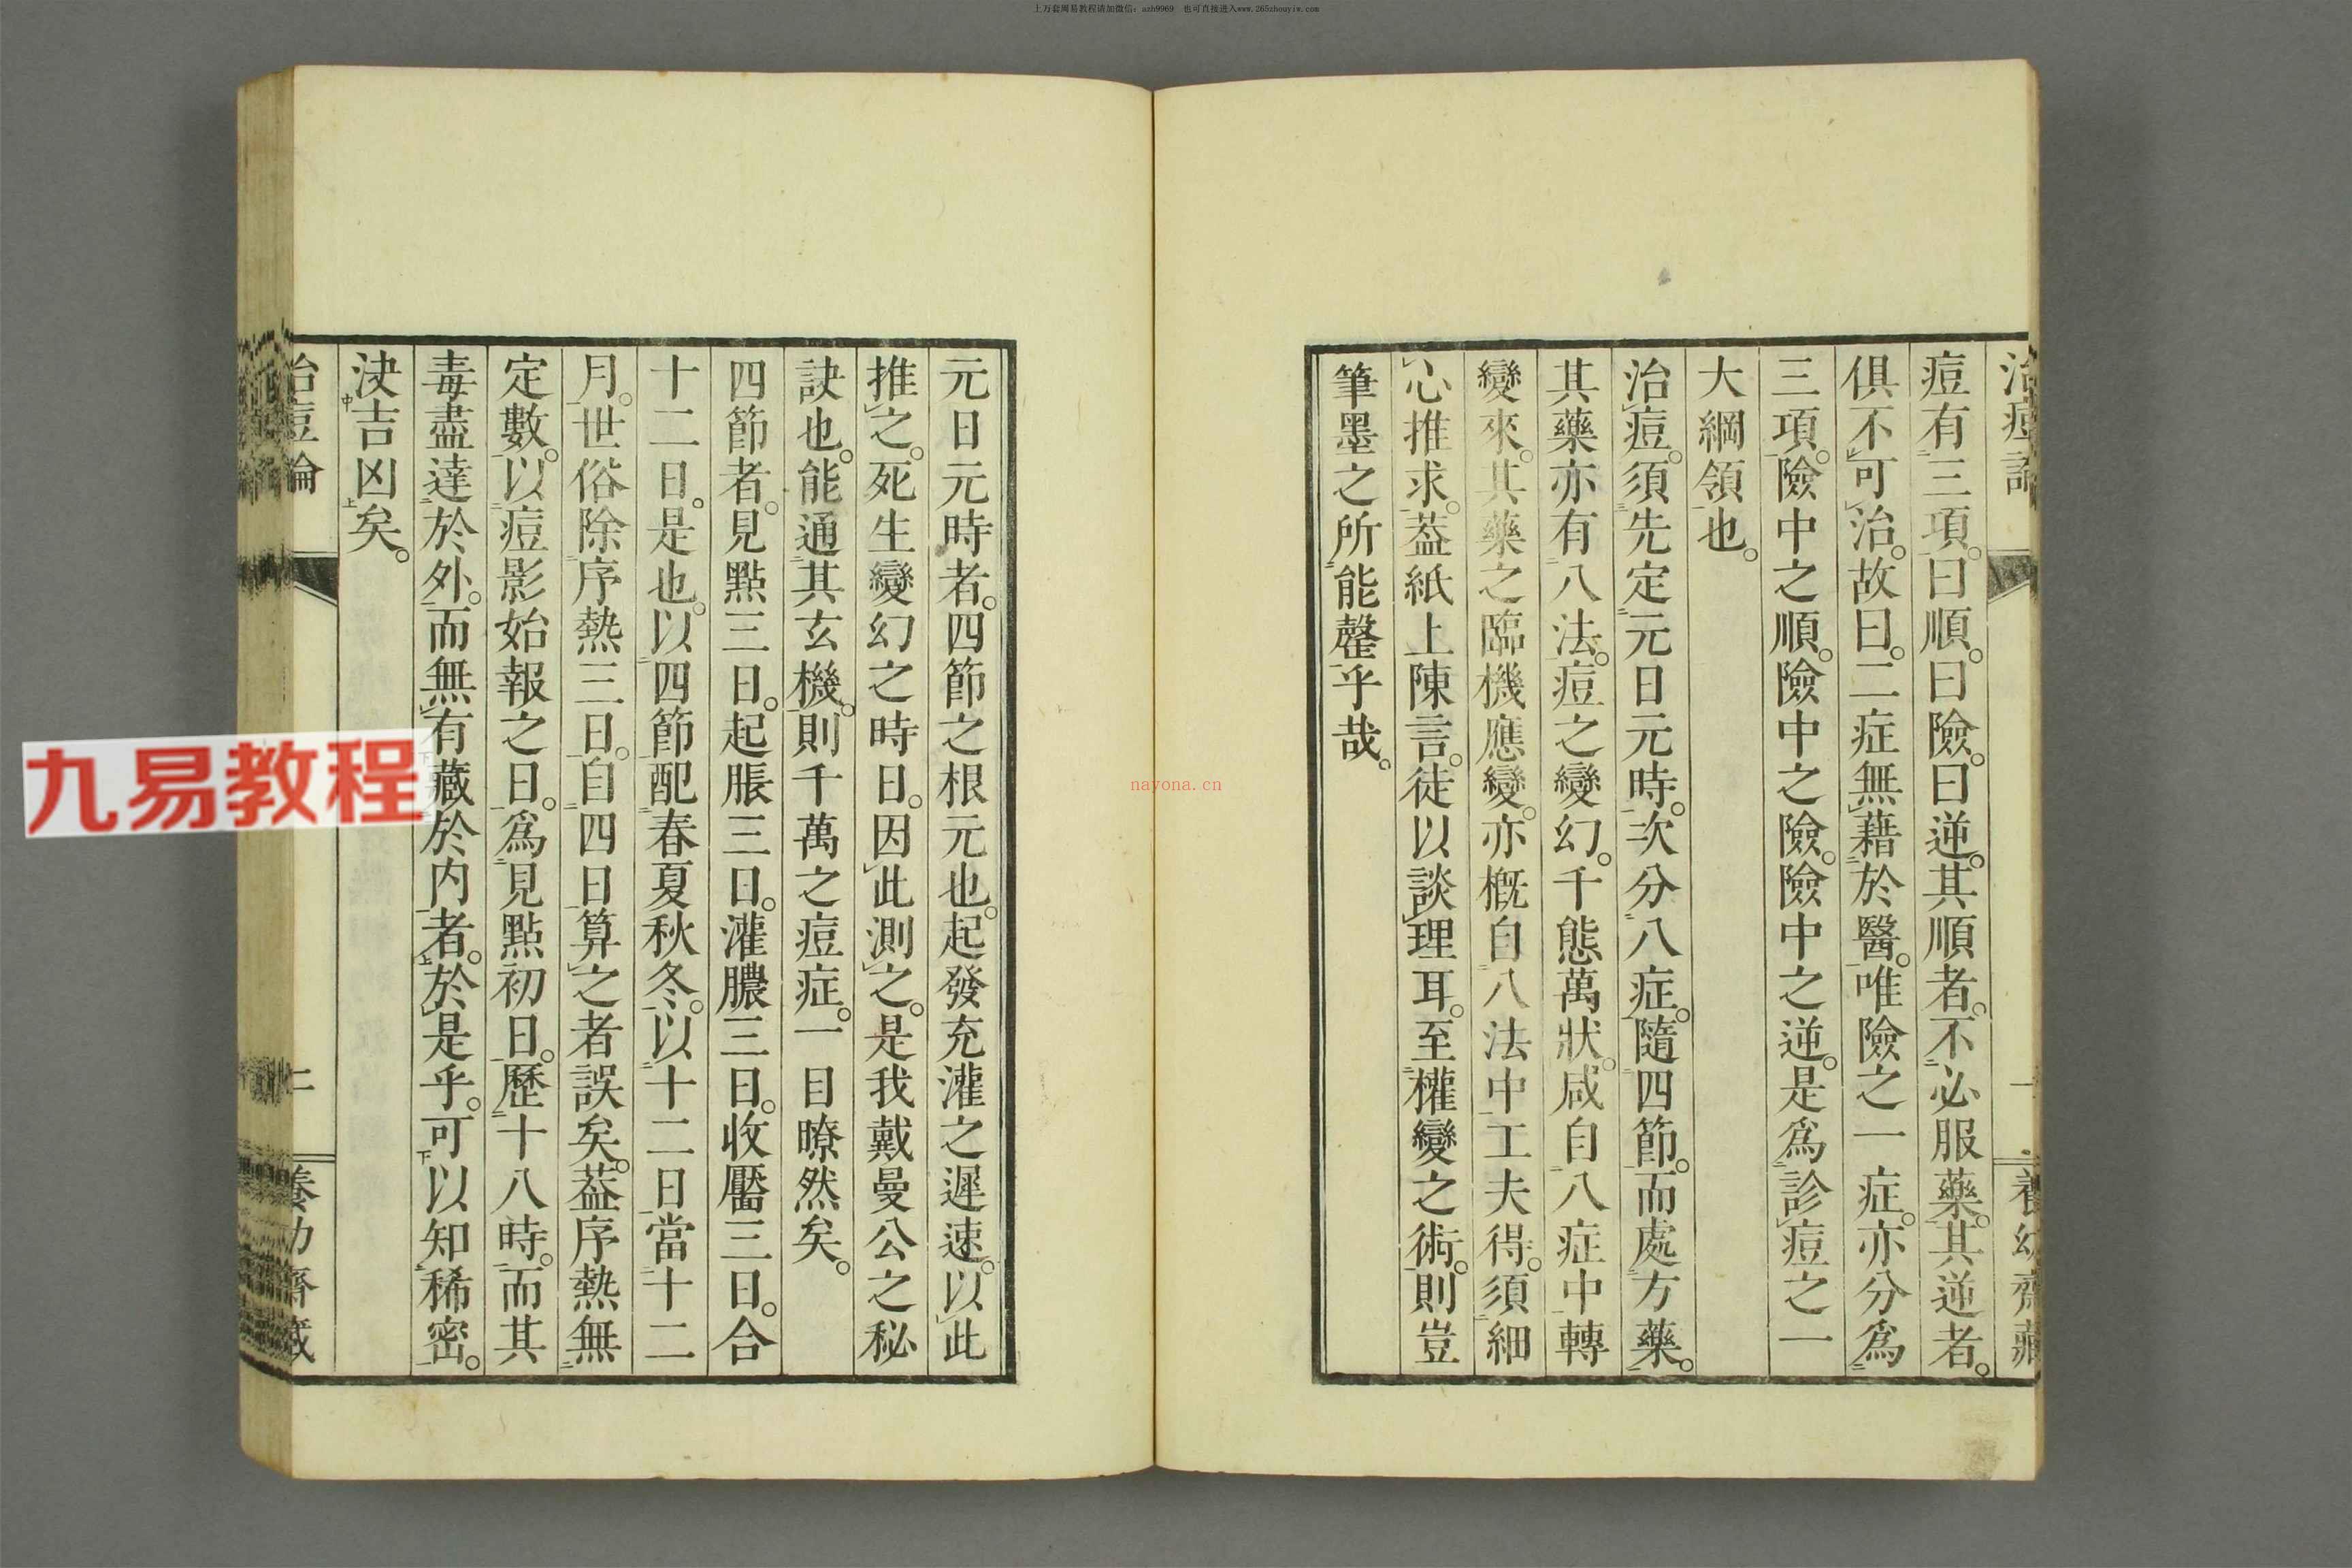 上万套周易教程请加微信：azh9969 也可直接进入www.265zhouyiw.com
治痘論
一
養幼齋藏
痘有三項。曰順。曰險。曰逆。其順者。不必服藥。其逆者。
俱不可治。故曰。二症無藉於醫。唯險之一症。亦分爲
三項。險中之順。險中之險。險中之逆。是爲診痘之一
大綱領也。
治痘。須先定元日元時。次分八症。隨四節。而處方藥。
其藥亦有八法。痘之變幻。千態萬狀。咸自八症中轉
變來。其藥之臨機應變。亦概自八法中工夫得。須細
心推求。葢紙上陳言。徒以談理耳。至權變之術。則豈
筆墨之所能罄乎哉。
元日元時者。四節之根元也。起發充灌之遲速。以此
推之。死生變幻之時日。因此測之。是我戴曼公之秘
訣也。能通其玄機。則千萬之痘症。一目暸然矣。
四節者。見點三日。起脹三日。灌膿三日。收靨三日。合
十二日。是也。以四節配春夏秋冬。以十二日當十二
月。世俗除序熱三日。自四日算之者誤矣。葢序熱無
定數。以痘影始報之日。爲見點初日。歷十八時。而其
毒盡達於外。而無有藏於内者。於是乎。可以知稀密。
決吉凶矣。
治痘論
二
養幼齋藏
九易教程
nayona.cn